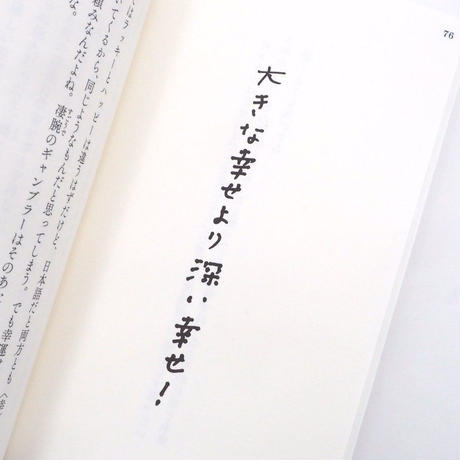 76
大きな幸せより深い幸せ!
はラッキーとハッピーは違うはずだけど、日本語だと両方とも〈幸
いてくるから、同じようなもんだと思ってしまう。でも幸運
頼みなんだよね。凄腕のギャンブラーはそのあ
な。
すごうで